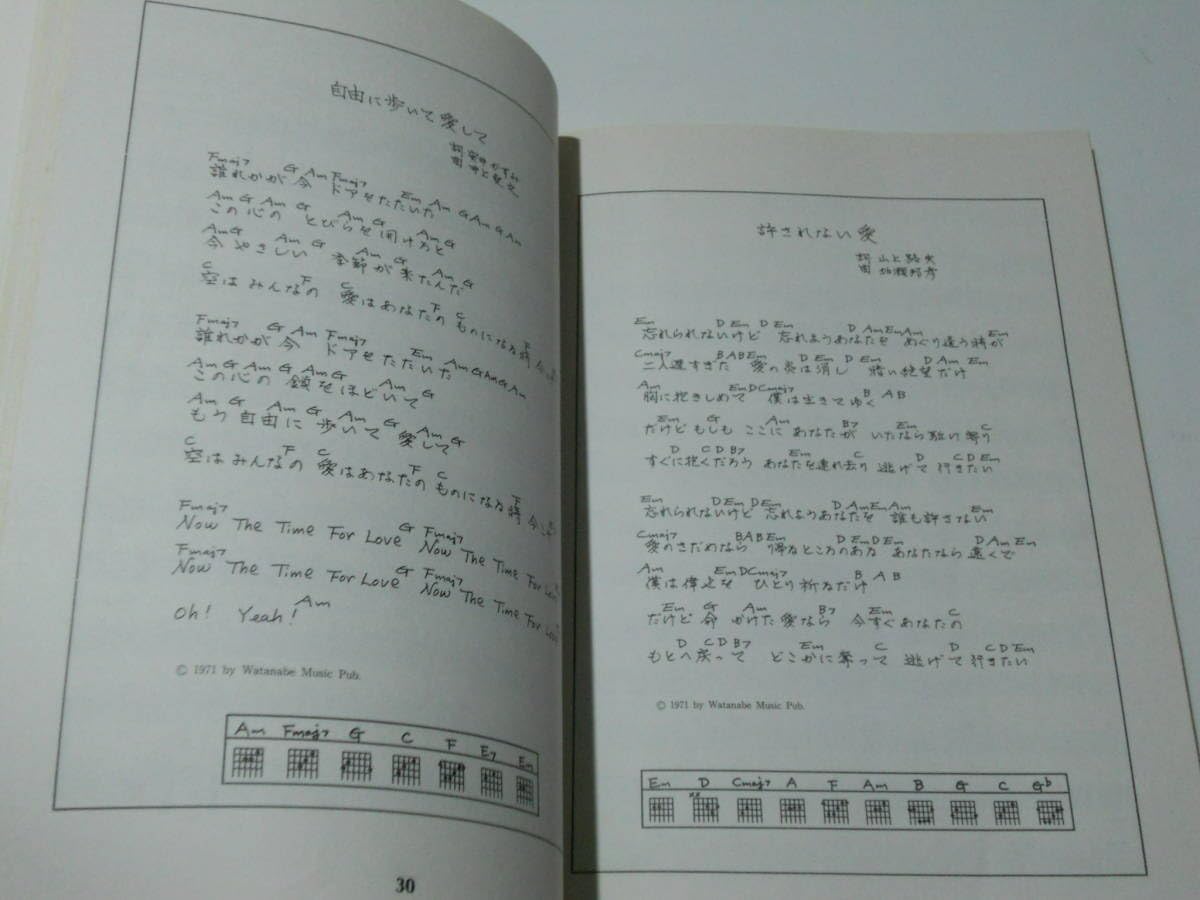 自由に歩いて愛して
詞 安井かずみ
曲 井上堯之
Fmaj7 G Am Fmaj7 Em Am G Am G Am
誰れかが今 ドアをたたいた
Am G Am G Am G Am G
この心の とびらを開けろと
Am G Am G Am G Am G
今 やさしい 季節が来たんだ
C F C F C F
空はみんなの 愛はあなたの ものになる時
Fmaj7 G Am Fmaj7 Em Am G Am G Am
誰れかが今 ドアをたたいた
Am G Am G Am G Am G
この心の 鎖をほどいて
Am G Am G Am G Am G
もう自由に 歩いて 愛して
C F C F C F
空はみんなの 愛はあなたの ものになる時
Fmaj7 G Fmaj7
Now The Time For Love Now The Time For
Fmaj7 G Fmaj7
Now The Time For Love Now The Time For
Am
Oh! Yeah!
© 1971 by Watanabe Music Pub.
Am Fmaj7 G C F E7 Em
30
許されない愛
詞 山上路夫
曲 加瀬邦彦
Em D Em D Em D Am Em Am Em
忘れられないけど 忘れようあなたを めぐり逢う時が
Cmaj7 B A B Em D Em D Em D Am Em
二人遅すぎた 愛の炎は消し 暗い絶望だけ
Am Em D Cmaj7 B A B
胸に抱きしめて 僕は生きてゆく
Em G Am B7 Em C
だけど もしも ここに あなたが いたなら駈い寄り
D C D B7 Em C D C D Em
すぐに抱くだろう あなたを連れ去り 逃げて 行きたい
Em D Em D Em D Am Em Am Em
忘れられないけど 忘れようあなたを 誰も許さない
Cmaj7 B A B Em D Em D Em D Am Em
愛のさだめなら 帰るところのある あなたなら 遠くで
Am Em D Cmaj7 B A B
僕は倖せを ひとり祈るだけ
Em G Am B7 Em C
だけど 命 かけた愛なら 今すぐあなたの
D C D B7 Em C D C D Em
もとへ戻って どこかに奪って 逃げて 行きたい
© 1971 by Watanabe Music Pub.
Em D Cmaj7 A F Am B G C G♭